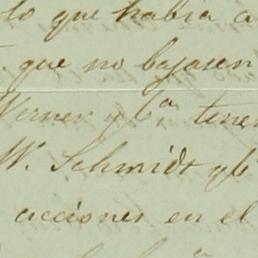 lo que habia a
que no bajasen
Werner y Cª tener
W. Schmidt y Cª
acciones en el